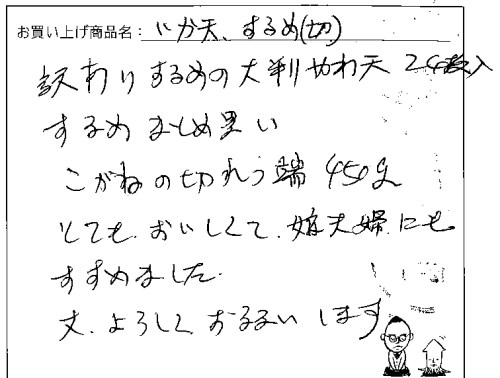 お買い上げ商品名：いか天、するめ(切)
訳わりするめの大判やわ天 24枚入
するめまとめ買い
こがねの切れっ端 450g
とても、おいしくて、娘夫婦にも
すすめました。
又、よろしく おねがい します